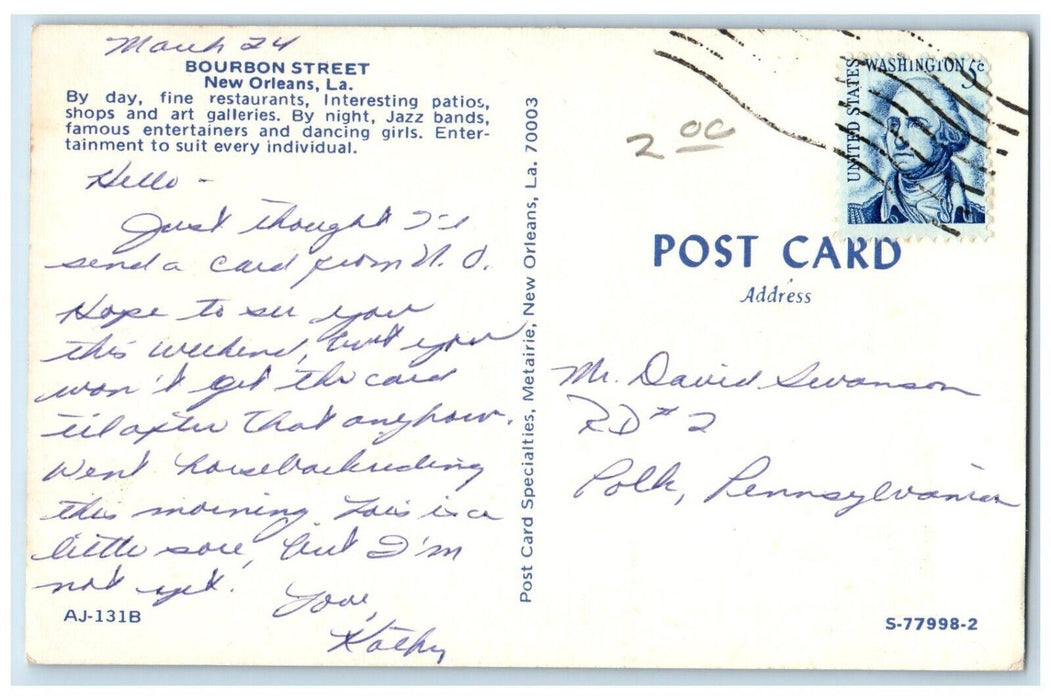 March 24
BOURBON STREET
New Orleans, La.
By day, fine restaurants, Interesting patios,
shops and art galleries. By night, Jazz bands,
famous entertainers and dancing girls. Enter-
tainment to suit every individual.
Hello -
Just thought I'd
send a card from N. O.
Hope to see you
this weekend, but you
won't get the card
til after that anyhow.
Went horsebackriding
this morning. Lois is a
little sore, but I'm
not yet.
Love,
Kathy
AJ-131B
Post Card Specialties, Metairie, New Orleans, La. 70003
2 00
UNITED STATES
WASHINGTON 5c
POST CARD
Address
Mr. David Swanson
RD # 2
Polk, Pennsylvania
S-77998-2